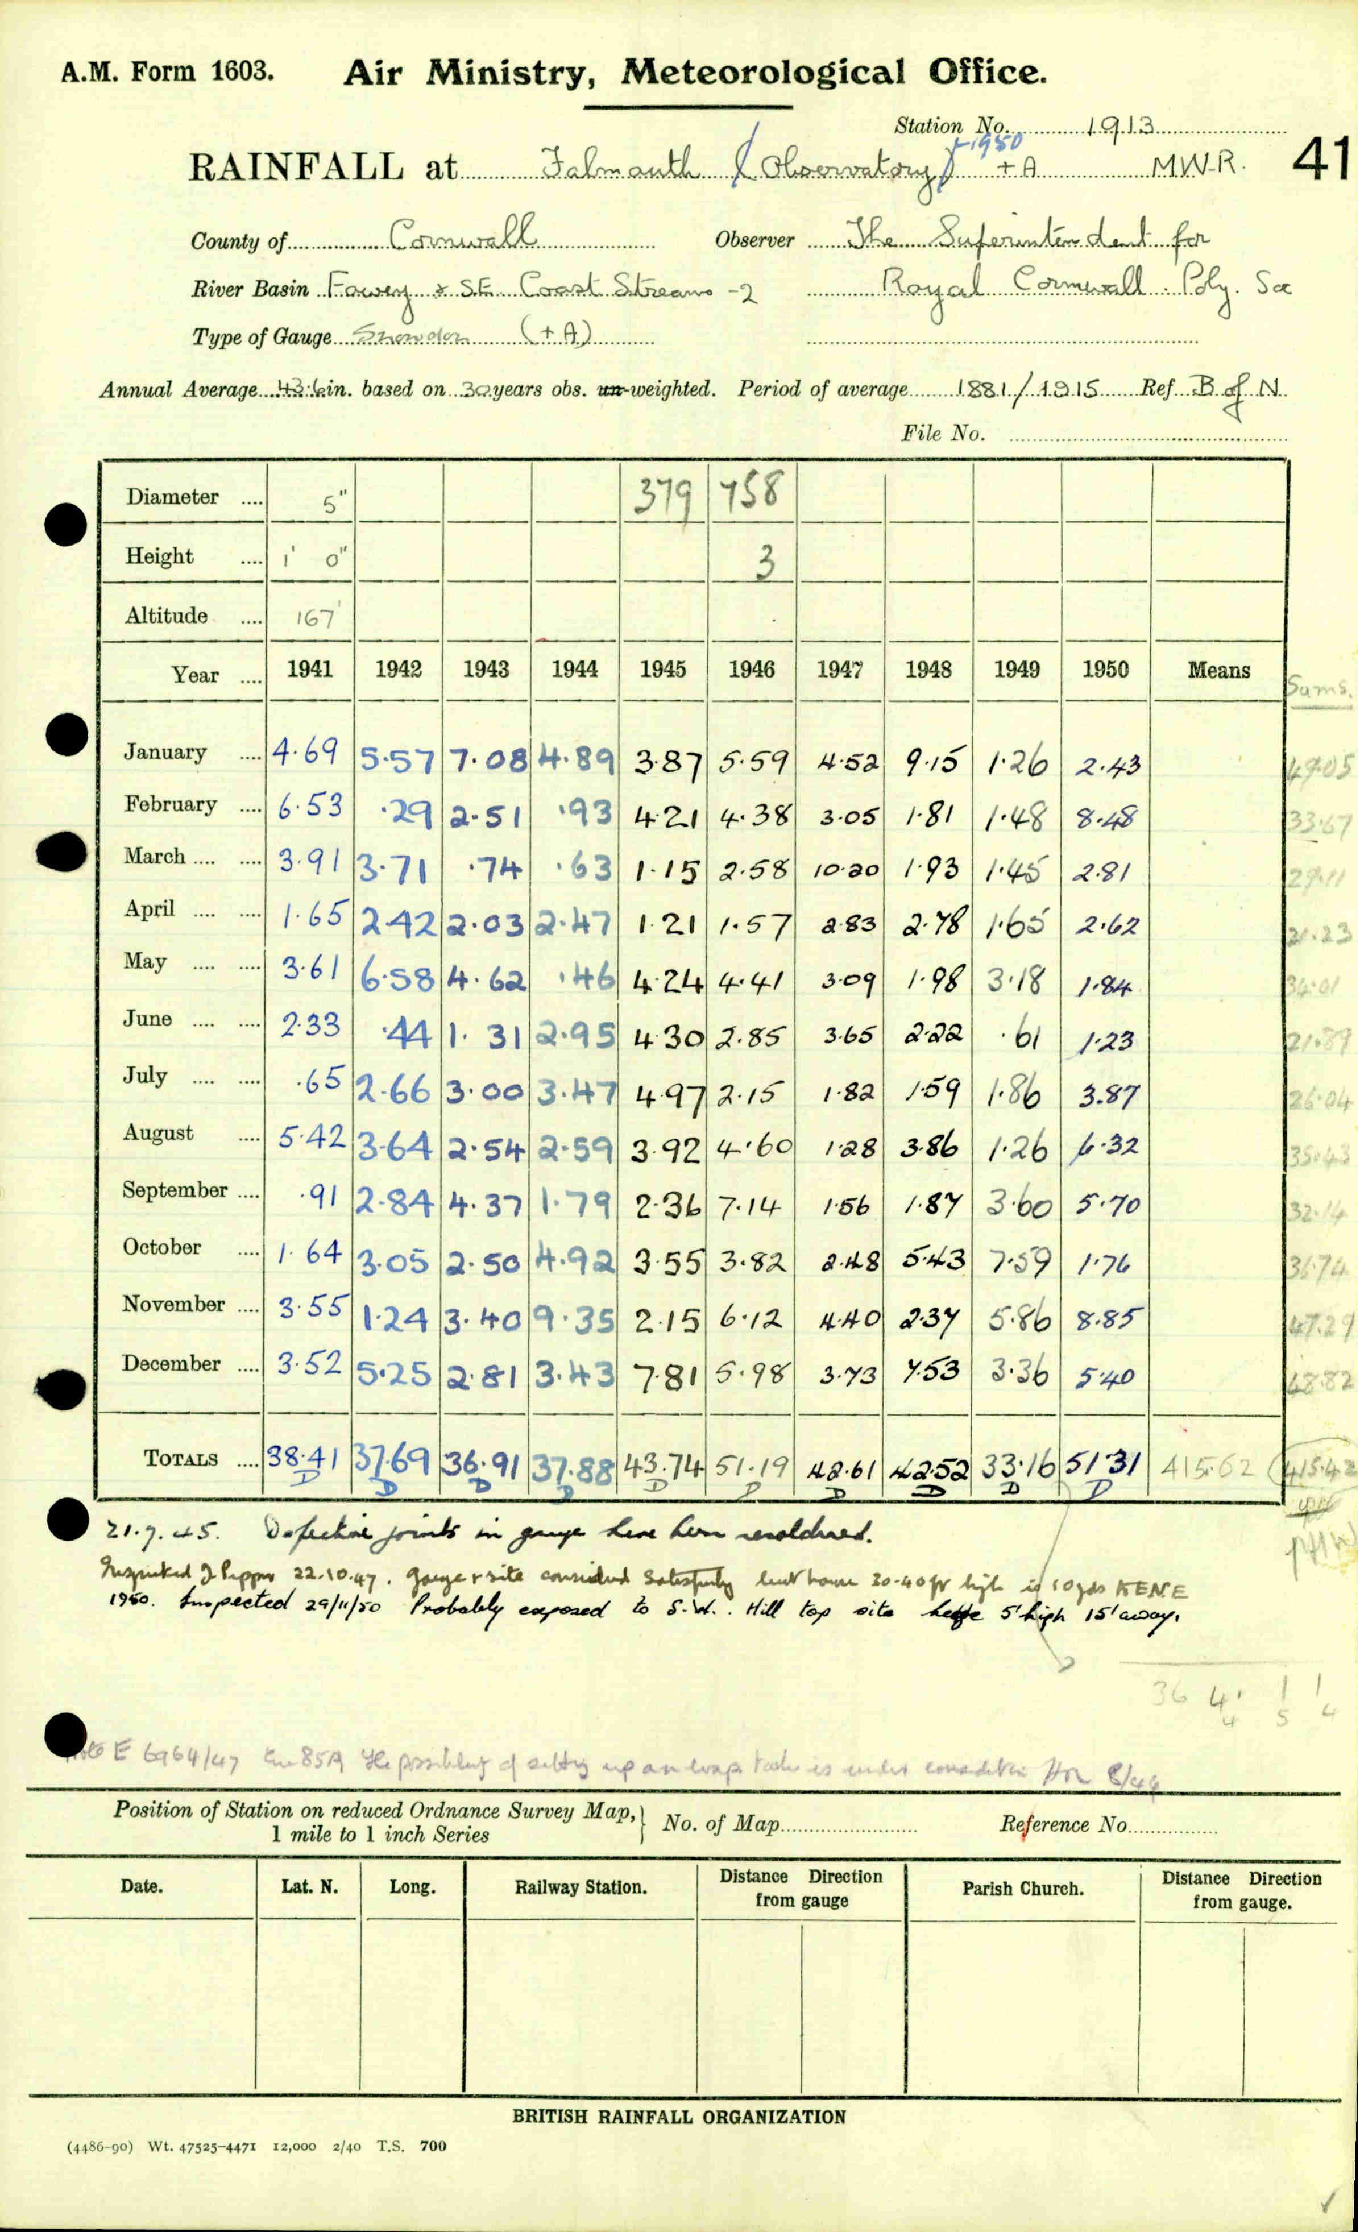 A.M. Form 1603. Air Ministry, Meteorological Office.
Station No. 1913
+1950
RAINFALL at Falmouth (Observatory) + A MWR. 41
County of Cornwall Observer The Superintendent for
River Basin Fowey & SE Coast Streams -2 Royal Cornwall. Poly. Soc
Type of Gauge Snowdon (+A)
Annual Average 43.6 in. based on 30 years obs. un-weighted. Period of average 1881/1915 Ref. B of N
File No.
Diameter .... 5" 379 758
Height .... 1' 0" 3
Altitude .... 167'
Year .... 1941 1942 1943 1944 1945 1946 1947 1948 1949 1950 Means Sums.
January .... 4.69 5.57 7.08 4.89 3.87 5.59 4.52 9.15 1.26 2.43 49.05
February .... 6.53 .29 2.51 .93 4.21 4.38 3.05 1.81 1.48 8.48 33.67
March .... .... 3.91 3.71 .74 .63 1.15 2.58 10.20 1.93 1.45 2.81 29.11
April .... .... 1.65 2.42 2.03 2.47 1.21 1.57 2.83 2.78 1.65 2.62 21.23
May .... .... 3.61 6.58 4.62 .46 4.24 4.41 3.09 1.98 3.18 1.84 34.01
June .... .... 2.33 .44 1.31 2.95 4.30 2.85 3.65 2.22 .61 1.23 21.89
July .... .... .65 2.66 3.00 3.47 4.97 2.15 1.82 1.59 1.86 3.87 26.04
August .... 5.42 3.64 2.54 2.59 3.92 4.60 1.28 3.86 1.26 6.32 35.43
September .... .91 2.84 4.37 1.79 2.36 7.14 1.56 1.87 3.60 5.70 32.14
October .... 1.64 3.05 2.50 4.92 3.55 3.82 2.48 5.43 7.59 1.76 36.74
November .... 3.55 1.24 3.40 9.35 2.15 6.12 4.40 2.37 5.86 8.85 47.29
December .... 3.52 5.25 2.81 3.43 7.81 5.98 3.73 7.53 3.36 5.40 48.82
TOTALS .... 38.41 37.69 36.91 37.88 43.74 51.19 42.61 42.52 33.16 51.31 415.62 415.42
D D D D D D D D D D
21.7.45. Defective joints in gauge have been resoldered.
Inspected J Pepper 22.10.47. gauge & site considered satisfactory but house 30-40 ft high is 10 yds to ENE
1950. Inspected 29/11/50 Probably exposed to S.W. Hill top site hedge 5' high 15' away.
36 4 1 1
4 5 4
E 6964/47 the possibility of setting up an evap tank is under consideration 8/49
Position of Station on reduced Ordnance Survey Map, } No. of Map Reference No.
1 mile to 1 inch Series
Date. Lat. N. Long. Railway Station. Distance Direction from gauge Parish Church. Distance Direction from gauge.
BRITISH RAINFALL ORGANIZATION
(4486-90) Wt. 47525-4471 12,000 2/40 T.S. 700